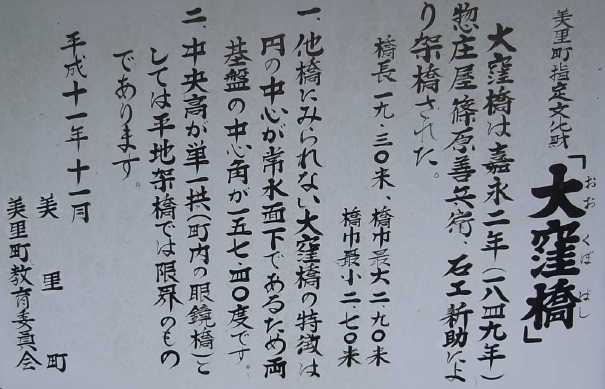 美里町指定文化財
「大窪橋」
おおくぼばし
大窪橋は嘉永二年(一八四九年)
惣庄屋篠原善兵衛、石工新助によ
り架橋された。
橋長一九.三〇米、橋巾最大二.九〇米
橋巾最小二.七〇米
一、他橋にみられない大窪橋の特徴は
円の中心が常水面下であるため両
基盤の中心角が一五七.四〇度です。
二、中央高が単一拱(町内の眼鏡橋)と
しては平地架橋では限界のもの
であります。
平成十一年十一月
美里町
美里町教育委員会